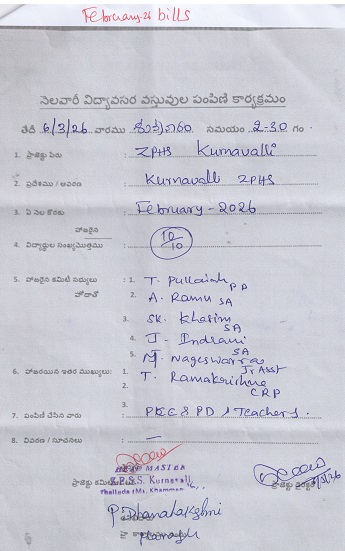 February-26 bills
నెలవారీ విద్యావసర వస్తువుల పంపిణి కార్యక్రమం
తేదీ 6/3/26 వారము శుక్రవారం సమయం 2-30 గం
1. ప్రాజెక్టు పేరు : ZPHS Kurnavalli
2. ప్రదేశము / ఆవరణ : Kurnavalli ZPHS
3. ఏ నెల కొరకు : February - 2026
హాజరైన
4. విద్యార్థుల సంఖ్య/మొత్తము : 10/10
5. హాజరైన కమిటీ సభ్యులు : 1. T. Pullaiah PD
హోదాతో 2. A. Ramu SA
3. SK. Khasim SA
4. J. Indrani SA
5. M. Nageswarrao Jr Asst
6. హాజరయిన ఇతర ముఖ్యులు: 1. T. Ramakrishna
2. CRP
3.
7. పంపిణీ చేసిన వారు : PEC & PD & Teachers.
8. వివరణ / సూచనలు : —
HEAD MASTER
ప్రాజెక్టు Z.P.S.S. Kurnavalli
Thallada (M), Khammam
ప్రాజెక్టు
6/3/26
P Dhanalakshmi